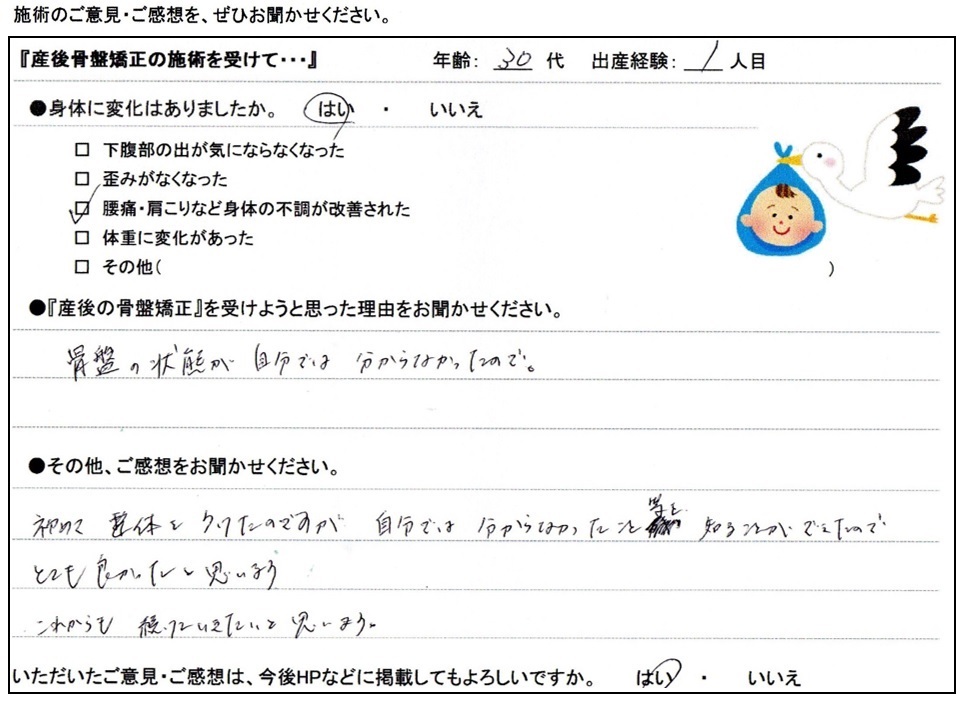 施術のご意見・ご感想を、ぜひお聞かせください。
『産後骨盤矯正の施術を受けて・・・』 年齢: 30 代 出産経験: 1 人目
●身体に変化はありましたか。 はい ・ いいえ
□ 下腹部の出が気にならなくなった
□ 歪みがなくなった
□ 腰痛・肩こりなど身体の不調が改善された
□ 体重に変化があった
□ その他( )
●『産後の骨盤矯正』を受けようと思った理由をお聞かせください。
骨盤の状態が 自分では 分からなかったので。
●その他、ご感想をお聞かせください。
初めて 整体を うけたのですが 自分では 分からなかったこと等を 知ることができたので
とても良かったと思います
これからも 続けていきたいと思います。
いただいたご意見・ご感想は、今後HPなどに掲載してもよろしいですか。 はい ・ いいえ